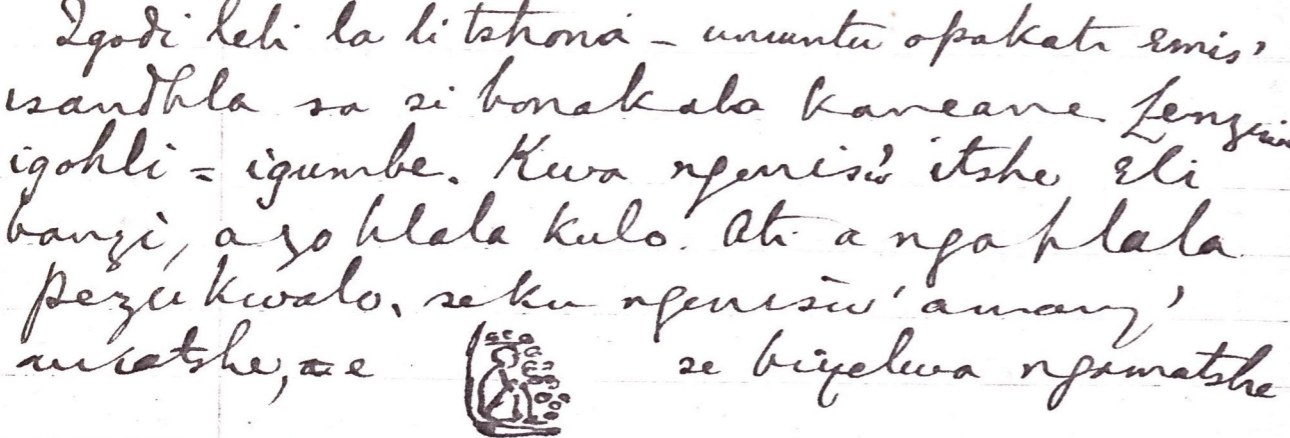 Igodi leli la li tshona – umuntu opakati emis'
isandhla sa si bonakala kancane. Lenziwa
igohli = igumbe. Kwa ngeniswa itshe eli
banzi, a zo hlala kulo. Ati a nga hlala
pezu kwalo, se ku ngeniswa' amany'
amatshe, e se biyelwa ngamatshe